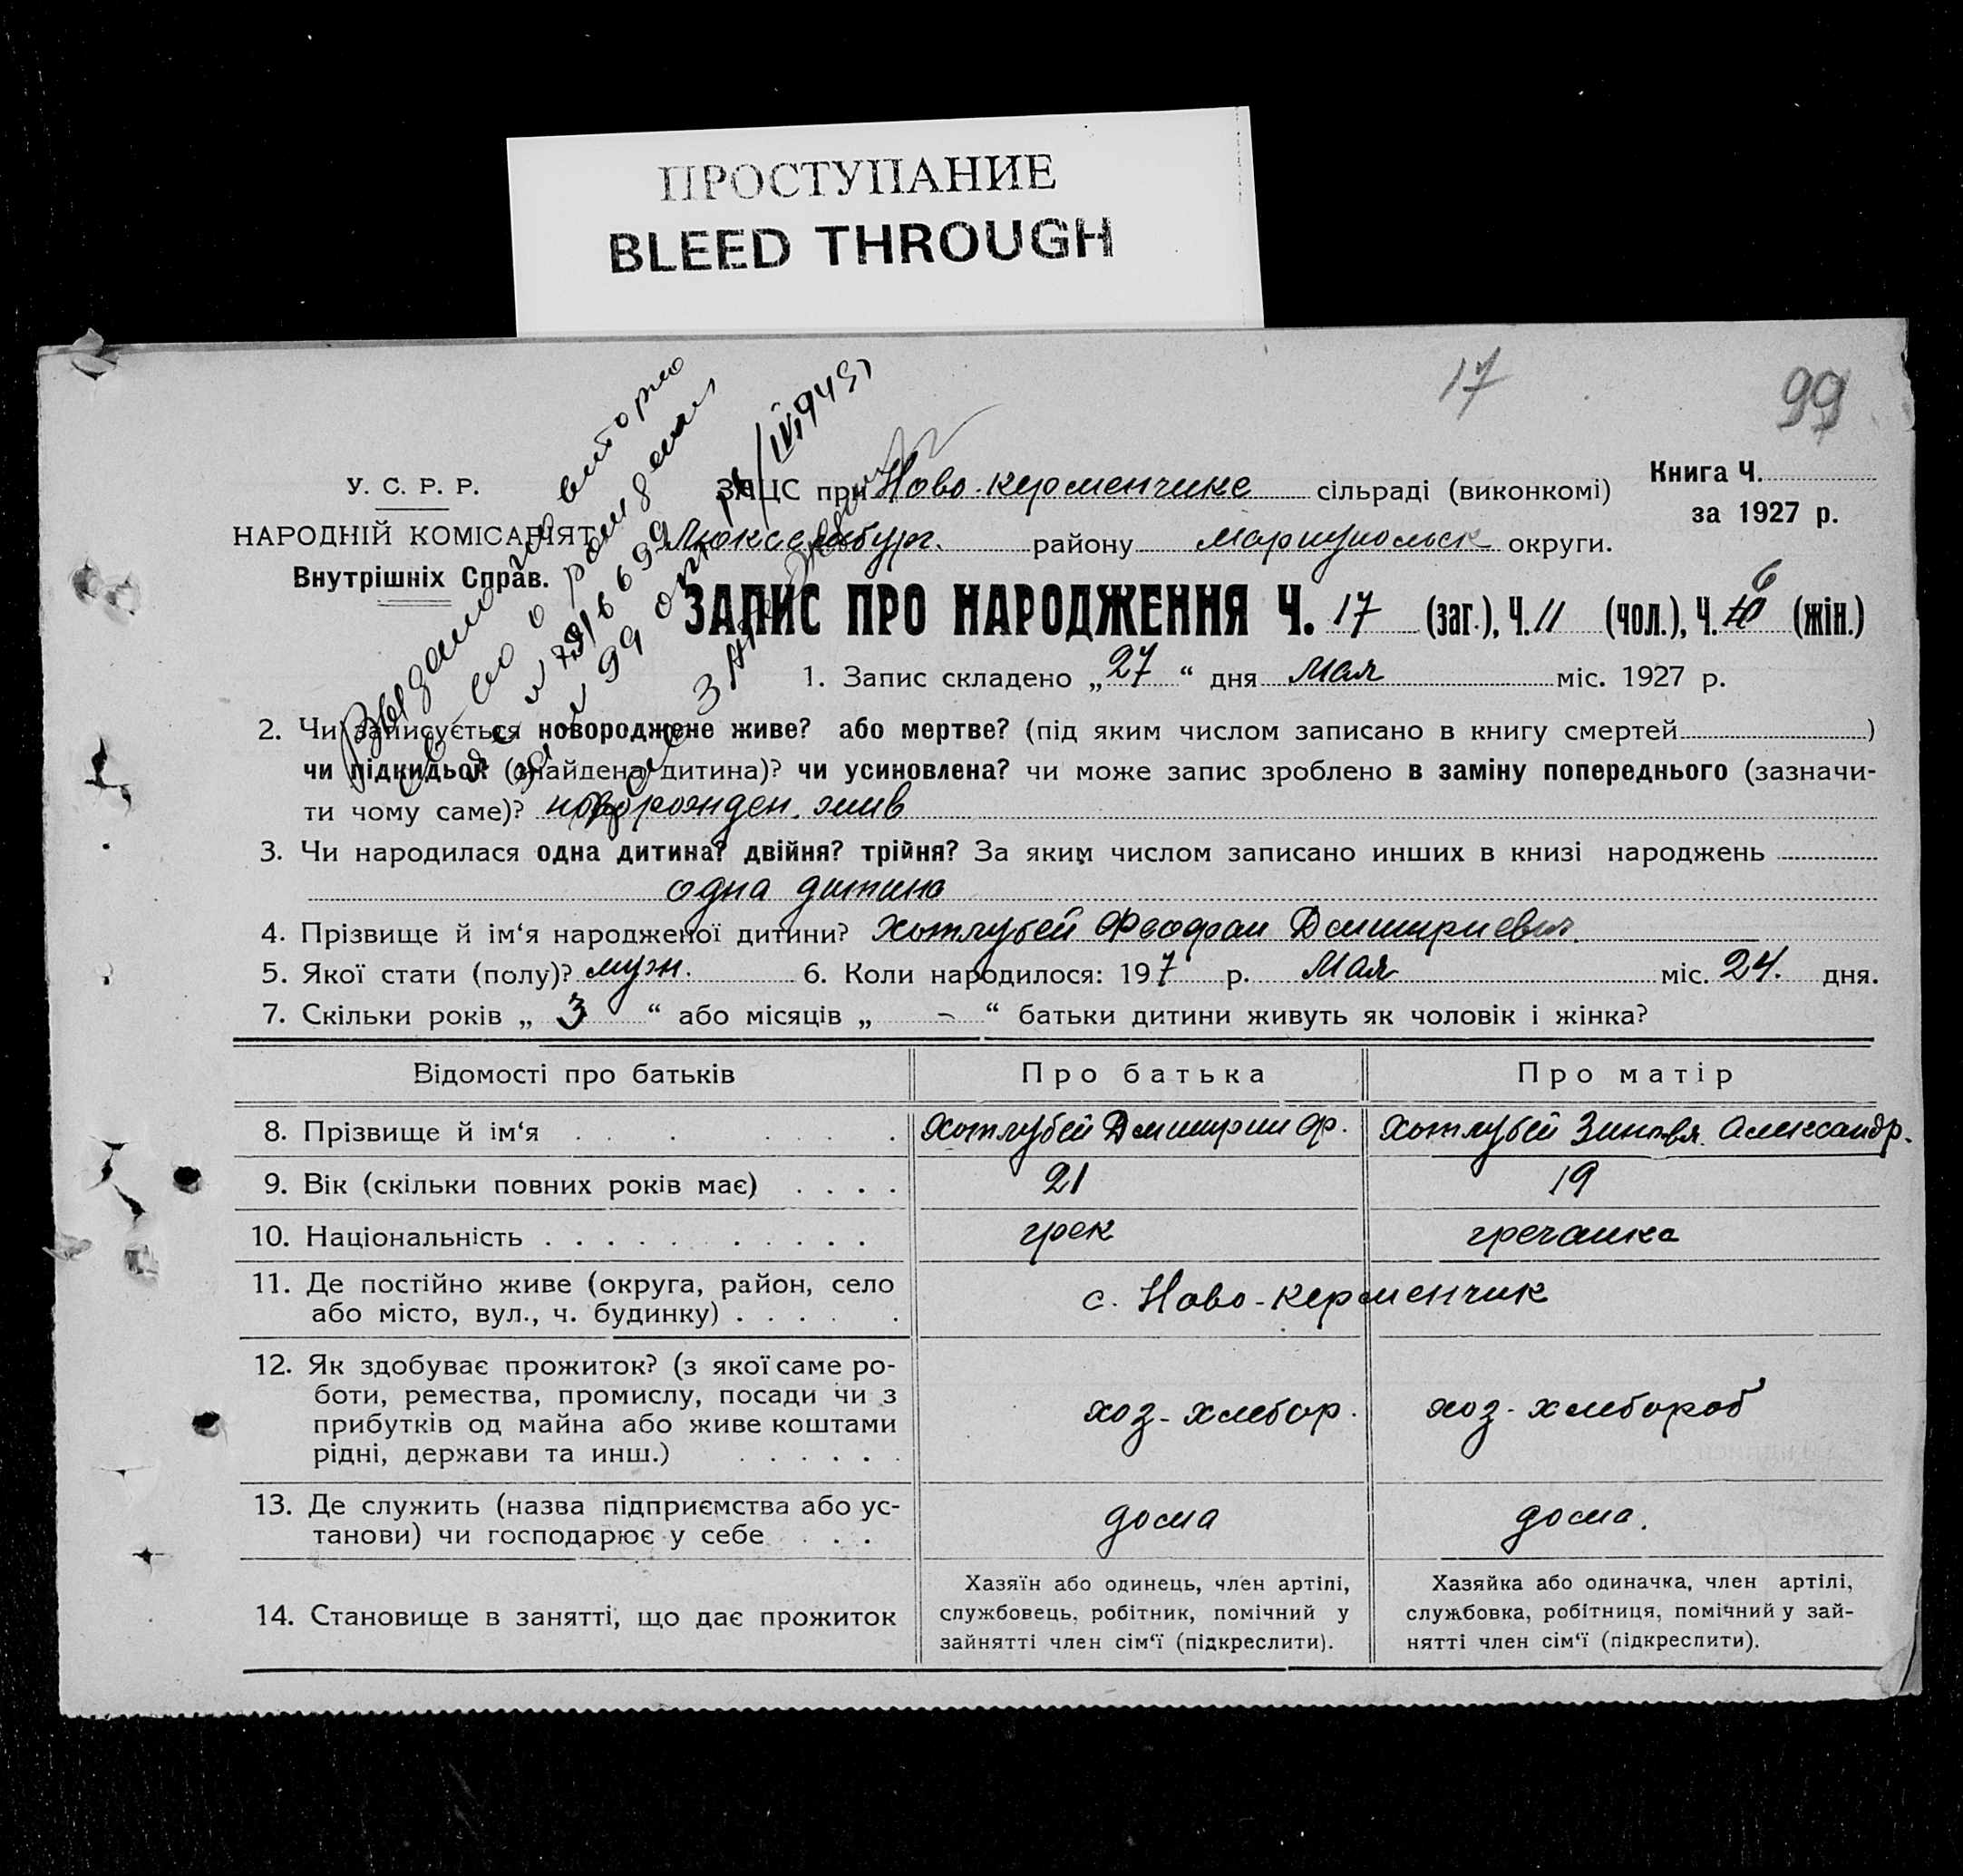 ПРОСТУПАНИЕ
BLEED THROUGH
17
99
Выдано повторно
св-во о рождении
У. С. Р. Р.
НАРОДНІЙ КОМІСАРІЯТ
Внутрішніх Справ.
ЗАЦС при Ново-керменчике сільраді (виконкомі)
Люксембург. району Мариупольск округи.
Книга Ч.
за 1927 р.
ЗАПИС ПРО НАРОДЖЕННЯ Ч. 17 (заг.), Ч. 11 (чол.), Ч. 6 (жін.)
1. Запис складено „27“ дня Мая міс. 1927 р.
2. Чи записується новороджене живе? або мертве? (під яким числом записано в книгу смертей )
чи підкидьок (знайдена дитина)? чи усиновлена? чи може запис зроблено в заміну попереднього (зазначи-
ти чому саме)? новорожден. жив
3. Чи народилася одна дитина? двійня? трійня? За яким числом записано инших в книзі народжень
одна дитина
4. Прізвище й ім‘я народженої дитини? Хотлубей Феофан Дмитриевич.
5. Якої стати (полу)? муж. 6. Коли народилося: 197 р. Мая міс. 24. дня.
7. Скільки років „ 3 “ або місяців „ - “ батьки дитини живуть як чоловік і жінка?
Відомості про батьків Про батька Про матір
8. Прізвище й ім‘я Хотлубей Дмитрий Ф. Хотлубей Зиновя. Александр.
9. Вік (скільки повних років має) 21 19
10. Національність грек гречанка
11. Де постійно живе (округа, район, село
або місто, вул., ч. будинку)
с. Ново-керменчик
12. Як здобуває прожиток? (з якої саме ро-
боти, ремества, промислу, посади чи з
прибутків од майна або живе коштами
рідні, держави та инш.)
хоз-хлебор. хоз-хлебороб
13. Де служить (назва підприємства або ус-
танови) чи господарює у себе
дома дома.
14. Становище в занятті, що дає прожиток
Хазяїн або одинець, член артілі,
службовець, робітник, помічний у
зайнятті член сім‘ї (підкреслити).
Хазяйка або одиначка, член артілі,
службовка, робітниця, помічний у зай-
нятті член сім‘ї (підкреслити).